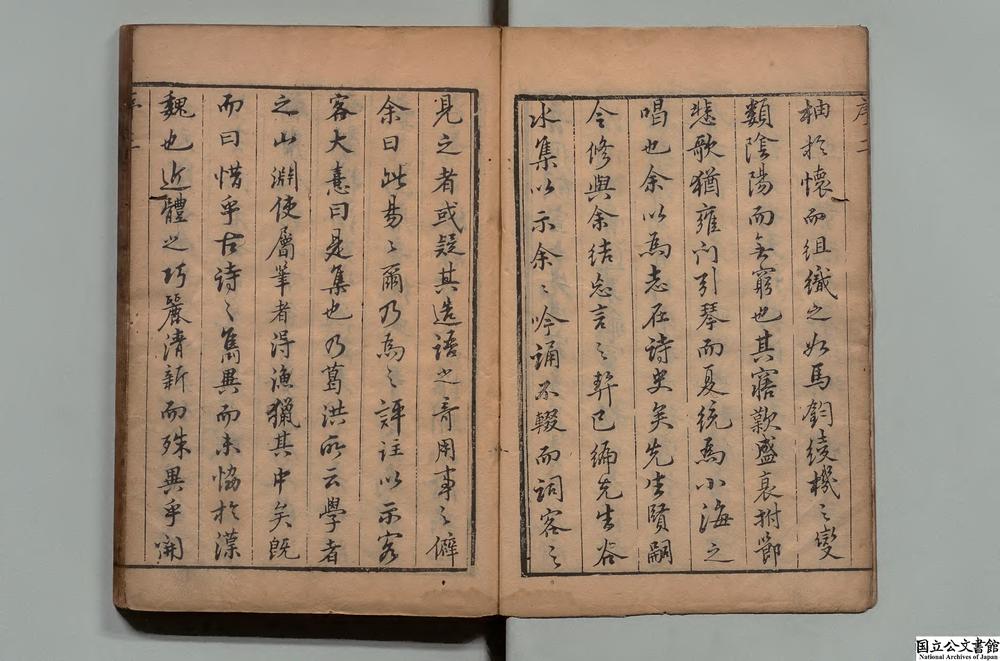 序二
柚於懷而組織之如馬鈞綾機之變
類陰陽而無窮也其寤歎盛衰拊節
悲歌猶雍門引琴而夏統爲小海之
唱也余以爲志在詩史矣先生賢嗣
令修與余結忘言之契已編先生谷
水集以示余余吟誦不輟而詞客之
見之者或疑其造語之奇用事之僻
余曰此易易爾乃爲之評註以示客
客大憙曰是集也乃葛洪所云學者
之山淵使屬筆者得漁獵其中矣既
而曰惜乎古詩之雋異而未恊於漢
魏也近體之巧麗清新而殊異乎開
国立公文書館
National Archives of Japan